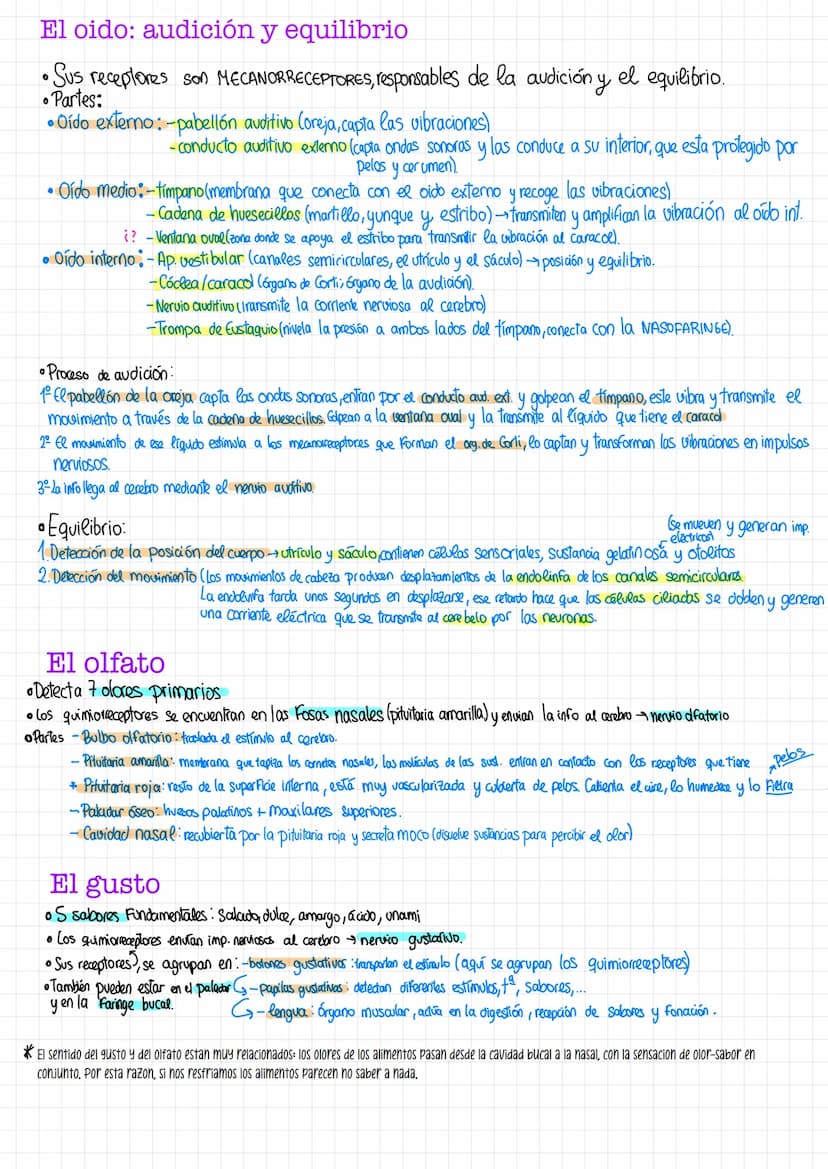 El oido: audición y equilibrio
• Sus receptores son MECANORRECEPTORES, responsables de la audición y el equilibrio.
• Partes:
• Oído externo: -pabellón auditivo (oreja, capta las vibraciones)
-conducto auditivo externo (capta ondas sonoras y las conduce a su interior, que esta protegido por
pelos y cerumen).
• Oído medio: -Tímpano (membrana que conecta con el oido externo y recoge las vibraciones)
- Cadena de huesecillos (martillo, yunque y estribo) → transmiten y amplifican la vibración al oído int.
¿? - Ventana oval (zona donde se apoya el estribo para transmitir la vibración al caracol).
• Oído interno: - Ap. vestibular (canales semicirculares, el utrículo y el sáculo) → posición y equilibrio.
-Cóclea/caracol (órgano de Corti; órgano de la audición).
- Nervio auditivo (transmite la corriente nerviosa al cerebro)
-Trompa de Eustaquio (nivela la presión a ambos lados del tímpano, conecta con la NASOFARINGE).
• Proceso de audición:
1º El pabellón de la oreja capta las ondas sonoras, entran por el conducto aud. ext. y golpean el tímpano, este vibra y transmite el
movimiento a través de la cadena de huesecillos. Golpean a la ventana oval y la transmite al líquido que tiene el caracol
2º El movimiento de ese líquido estimula a los mecanorreceptores que forman el org. de Corti, lo captan y transforman las vibraciones en impulsos
nerviosos.
3º La info llega al cerebro mediante el nervio auditivo.
• Equilibrio:
(se mueven y generan imp.
eléctricos)
1. Detección de la posición del cuerpo → utrículo y sáculo, contienen células sensoriales, sustancia gelatinosa y otolitos
2. Detección del movimiento (los movimientos de cabeza producen desplazamientos de la endolinfa de los canales semicirculares.
La endolinfa tarda unos segundos en desplazarse, ese retardo hace que las células ciliadas se doblen y generen
una corriente eléctrica que se transmite al cerebelo por las neuronas.
El olfato
• Detecta 7 olores primarios
• Los quimiorreceptores se encuentran en las fosas nasales (pituitaria amarilla) y envian la info al cerebro → nervio olfatorio
• Partes - Bulbo olfatorio: traslada el estímulo al cerebro.
- Pituitaria amarilla: membrana que tapiza los cornetes nasales, las moléculas de las sust. entran en contacto con los receptores que tiene ↗ pelos
+ Pituitaria roja: resto de la superficie interna, está muy vascularizada y cubierta de pelos. Calienta el aire, lo humedece y lo filtra
- Paladar óseo: huesos palatinos + maxilares superiores.
- Cavidad nasal: recubierta por la pituitaria roja y secreta moco (disuelve sustancias para percibir el olor)
El gusto
• 5 sabores fundamentales: Salado, dulce, amargo, ácido, unami
• Los quimiorreceptores envían imp. nerviosos al cerebro → nervio gustativo.
• Sus receptores, se agrupan en: - botones gustativos: transportan el estímulo (aquí se agrupan los quimiorreceptores)
• También pueden estar en el paladar - papilas gustativas: detectan diferentes estímulos, tª, sabores,...
y en la faringe bucal. - lengua: órgano muscular, actúa en la digestión, recepción de sabores y fonación.
* El sentido del gusto y del olfato estan muy relacionados: los olores de los alimentos pasan desde la cavidad bucal a la nasal, con la sensacion de olor-sabor en
conjunto. Por esta razon, si nos resfriamos los alimentos parecen no saber a nada.